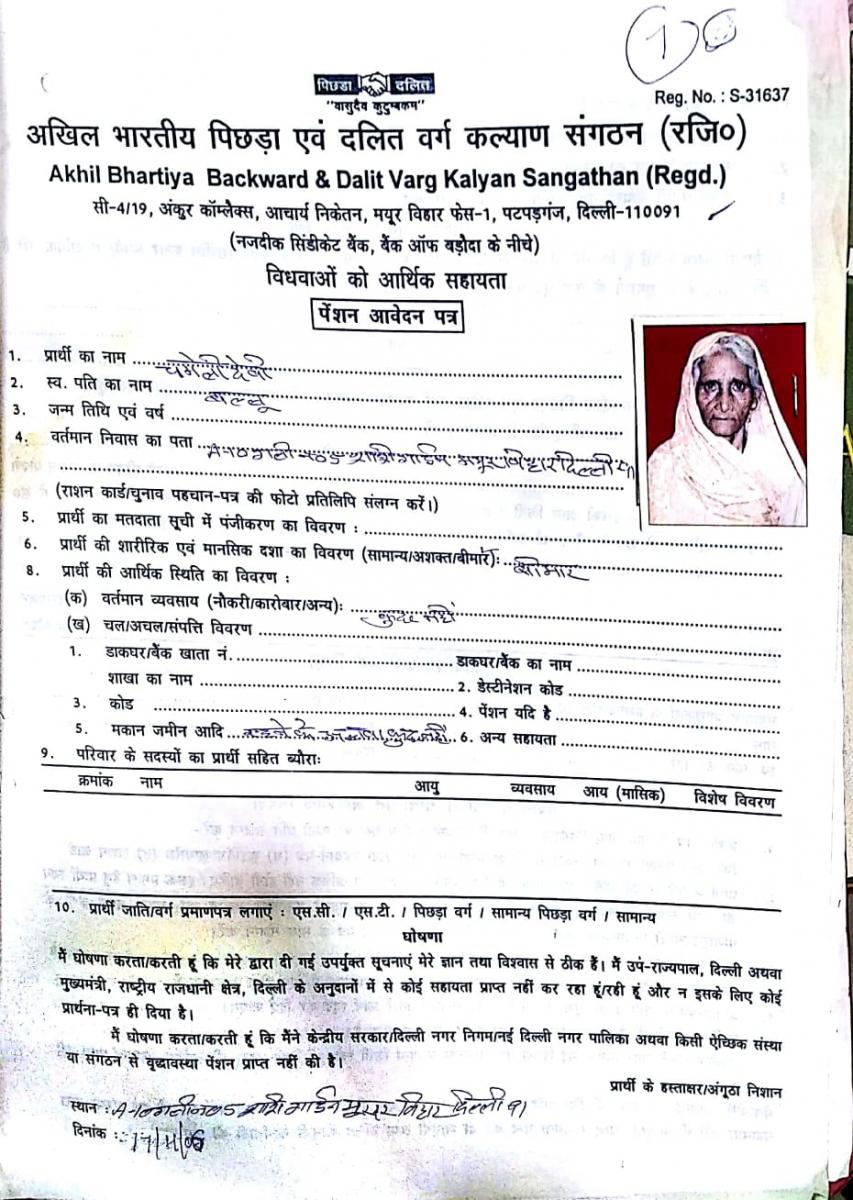 1
पिछड़ा दलित
"वासुदैव कुटुम्बकम"
Reg. No. : S-31637
अखिल भारतीय पिछड़ा एवं दलित वर्ग कल्याण संगठन (रजि०)
Akhil Bhartiya Backward & Dalit Varg Kalyan Sangathan (Regd.)
सी-4/19, अंकुर कॉम्लैक्स, आचार्य निकेतन, मयूर विहार फेस-1, पटपड़गंज, दिल्ली-110091
(नजदीक सिंडीकेट बैंक, बैंक ऑफ बड़ौदा के नीचे)
विधवाओं को आर्थिक सहायता
पेंशन आवेदन पत्र
1. प्रार्थी का नाम चमेली देवी
2. स्व. पति का नाम बाल्लू
3. जन्म तिथि एवं वर्ष
4. वर्तमान निवास का पता शशी गार्डन मयूर विहार दिल्ली 91
(राशन कार्ड/चुनाव पहचान-पत्र की फोटो प्रतिलिपि संलग्न करें।)
5. प्रार्थी का मतदाता सूची में पंजीकरण का विवरण :
6. प्रार्थी की शारीरिक एवं मानसिक दशा का विवरण (सामान्य/अशक्त/बीमार): बीमार
8. प्रार्थी की आर्थिक स्थिति का विवरण :
(क) वर्तमान व्यवसाय (नौकरी/कारोबार/अन्य):
(ख) चल/अचल/संपत्ति विवरण
1. डाकघर/बैंक खाता नं. डाकघर/बैंक का नाम
शाखा का नाम 2. डेस्टीनेशन कोड
3. कोड 4. पेंशन यदि है
5. मकान जमीन आदि 6. अन्य सहायता
9. परिवार के सदस्यों का प्रार्थी सहित ब्यौराः
क्रमांक नाम आयु व्यवसाय आय (मासिक) विशेष विवरण
10. प्रार्थी जाति/वर्ग प्रमाणपत्र लगाएं : एस.सी. / एस.टी. / पिछड़ा वर्ग / सामान्य पिछड़ा वर्ग / सामान्य
घोषणा
मैं घोषणा करता/करती हूं कि मेरे द्वारा दी गई उपर्युक्त सूचनाएं मेरे ज्ञान तथा विश्वास से ठीक हैं। मैं उप-राज्यपाल, दिल्ली अथवा
मुख्यमंत्री, राष्ट्रीय राजधानी क्षेत्र, दिल्ली के अनुदानों में से कोई सहायता प्राप्त नहीं कर रहा हूं/रही हूं और न इसके लिए कोई
प्रार्थना-पत्र ही दिया है।
मैं घोषणा करता/करती हूं कि मैंने केन्द्रीय सरकार/दिल्ली नगर निगम/नई दिल्ली नगर पालिका अथवा किसी ऐच्छिक संस्था
या संगठन से वृद्धावस्था पेंशन प्राप्त नहीं की है।
प्रार्थी के हस्ताक्षर/अंगूठा निशान
स्थान : शशी गार्डन मयूर विहार दिल्ली 91
दिनांक :